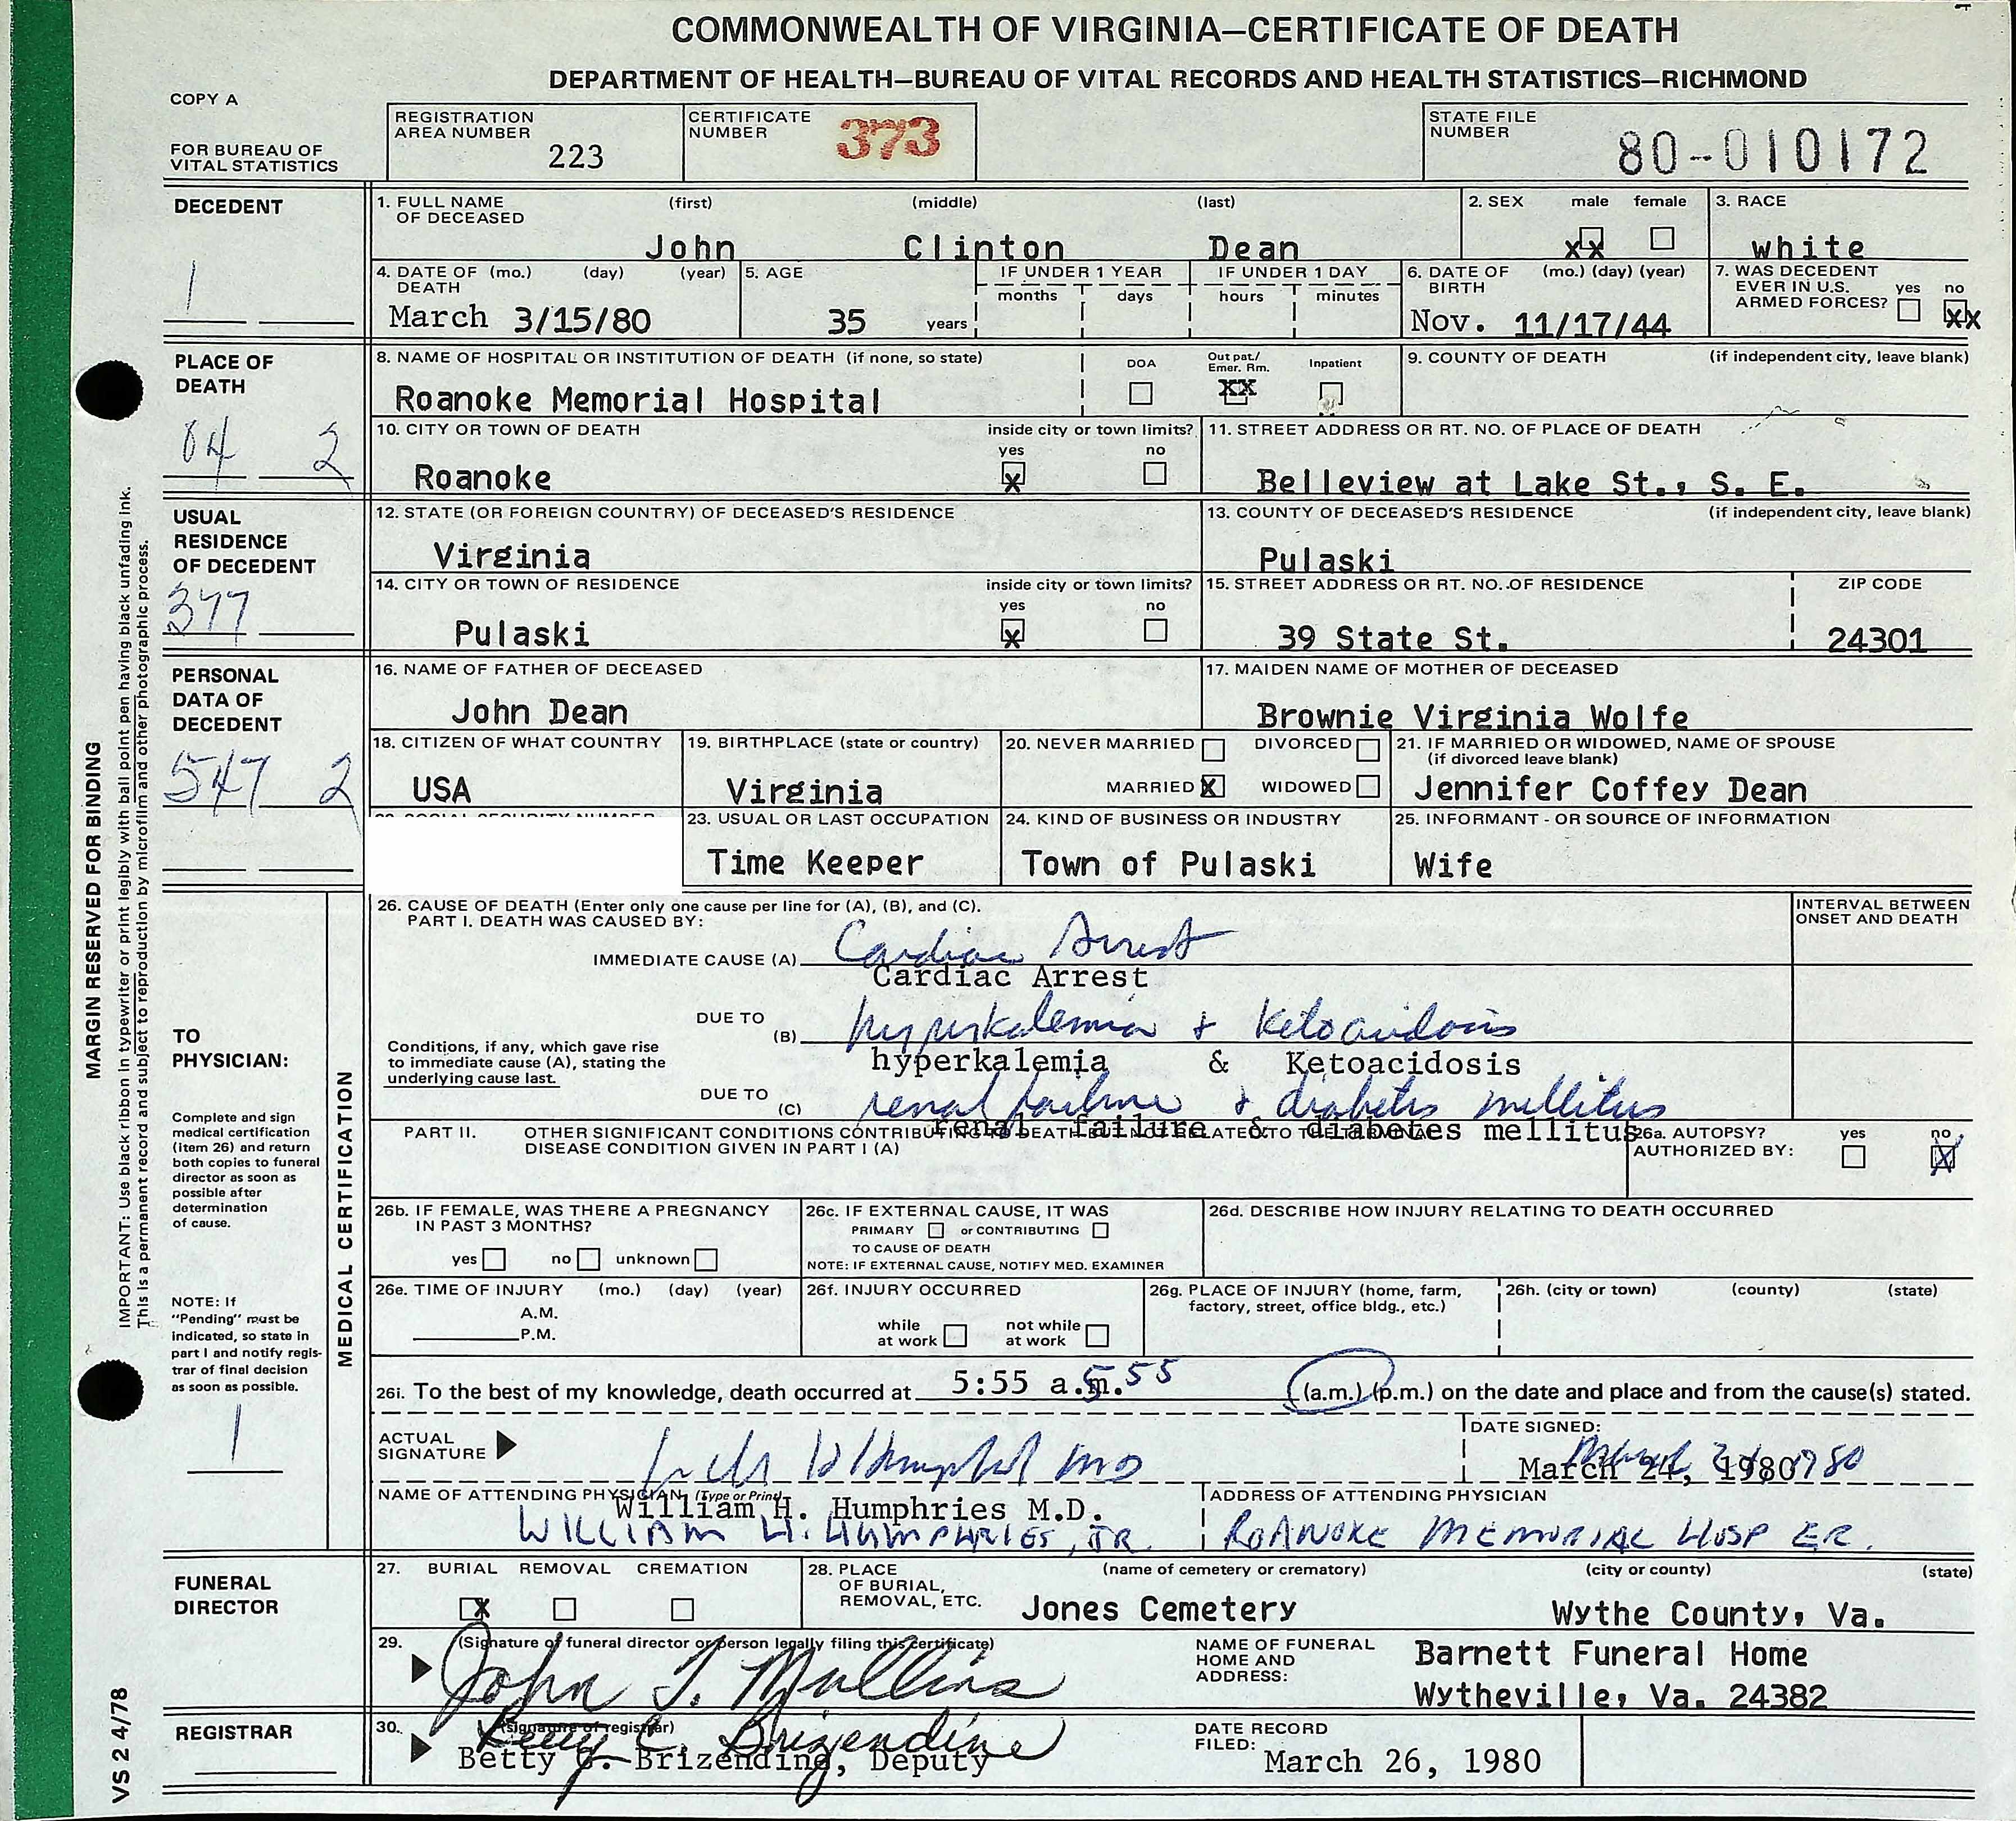 COMMONWEALTH OF VIRGINIA—CERTIFICATE OF DEATH
DEPARTMENT OF HEALTH—BUREAU OF VITAL RECORDS AND HEALTH STATISTICS—RICHMOND
COPY A
FOR BUREAU OF
VITAL STATISTICS
REGISTRATION
AREA NUMBER 223
CERTIFICATE
NUMBER 373
STATE FILE
NUMBER 80-010172
DECEDENT
1
1. FULL NAME
OF DECEASED (first) (middle) (last)
John Clinton Dean
2. SEX male female
XX
3. RACE
white
4. DATE OF (mo.) (day) (year)
DEATH
March 3/15/80
5. AGE
35 years
IF UNDER 1 YEAR
months days
IF UNDER 1 DAY
hours minutes
6. DATE OF (mo.) (day) (year)
BIRTH
Nov. 11/17/44
7. WAS DECEDENT
EVER IN U.S.
ARMED FORCES? yes no
XX
PLACE OF
DEATH
04 2
8. NAME OF HOSPITAL OR INSTITUTION OF DEATH (if none, so state)
Roanoke Memorial Hospital
DOA Out pat./ Emer. Rm. Inpatient
XX
9. COUNTY OF DEATH (if independent city, leave blank)
10. CITY OR TOWN OF DEATH inside city or town limits?
yes no
Roanoke X
11. STREET ADDRESS OR RT. NO. OF PLACE OF DEATH
Belleview at Lake St., S. E.
USUAL
RESIDENCE
OF DECEDENT
377
12. STATE (OR FOREIGN COUNTRY) OF DECEASED'S RESIDENCE
Virginia
13. COUNTY OF DECEASED'S RESIDENCE (if independent city, leave blank)
Pulaski
14. CITY OR TOWN OF RESIDENCE inside city or town limits?
yes no
Pulaski X
15. STREET ADDRESS OR RT. NO. OF RESIDENCE ZIP CODE
39 State St. 24301
PERSONAL
DATA OF
DECEDENT
547 2
16. NAME OF FATHER OF DECEASED
John Dean
17. MAIDEN NAME OF MOTHER OF DECEASED
Brownie Virginia Wolfe
18. CITIZEN OF WHAT COUNTRY
USA
19. BIRTHPLACE (state or country)
Virginia
20. NEVER MARRIED DIVORCED
MARRIED X WIDOWED
21. IF MARRIED OR WIDOWED, NAME OF SPOUSE
(if divorced leave blank)
Jennifer Coffey Dean
23. USUAL OR LAST OCCUPATION
Time Keeper
24. KIND OF BUSINESS OR INDUSTRY
Town of Pulaski
25. INFORMANT - OR SOURCE OF INFORMATION
Wife
MARGIN RESERVED FOR BINDING
IMPORTANT: Use black ribbon in typewriter or print legibly with ball point pen having black unfading ink.
This is a permanent record and subject to reproduction by microfilm and other photographic process.
TO
PHYSICIAN:
Complete and sign
medical certification
(item 26) and return
both copies to funeral
director as soon as
possible after
determination
of cause.
NOTE: If
"Pending" must be
indicated, so state in
part I and notify regis-
trar of final decision
as soon as possible.
1
MEDICAL CERTIFICATION
26. CAUSE OF DEATH (Enter only one cause per line for (A), (B), and (C).
PART I. DEATH WAS CAUSED BY:
INTERVAL BETWEEN
ONSET AND DEATH
IMMEDIATE CAUSE (A) Cardiac Arrest
Cardiac Arrest
DUE TO
(B) hyperkalemia + Ketoacidosis
hyperkalemia & Ketoacidosis
Conditions, if any, which gave rise
to immediate cause (A), stating the
underlying cause last.
DUE TO
(C) renal failure & diabetes mellitus
renal failure & diabetes mellitus
PART II. OTHER SIGNIFICANT CONDITIONS CONTRIBUTING TO DEATH BUT NOT RELATED TO THE TERMINAL
DISEASE CONDITION GIVEN IN PART I (A)
26a. AUTOPSY? yes no
AUTHORIZED BY: X
26b. IF FEMALE, WAS THERE A PREGNANCY
IN PAST 3 MONTHS?
yes no unknown
26c. IF EXTERNAL CAUSE, IT WAS
PRIMARY or CONTRIBUTING
TO CAUSE OF DEATH
NOTE: IF EXTERNAL CAUSE, NOTIFY MED. EXAMINER
26d. DESCRIBE HOW INJURY RELATING TO DEATH OCCURRED
26e. TIME OF INJURY (mo.) (day) (year)
A.M.
P.M.
26f. INJURY OCCURRED
while
at work
not while
at work
26g. PLACE OF INJURY (home, farm,
factory, street, office bldg., etc.)
26h. (city or town) (county) (state)
26i. To the best of my knowledge, death occurred at 5:55 a.m. 555 (a.m.) (p.m.) on the date and place and from the cause(s) stated.
ACTUAL
SIGNATURE MD
DATE SIGNED:
March 24, 1980
NAME OF ATTENDING PHYSICIAN (Type or Print)
William H. Humphries M.D.
WILLIAM H. HUMPHRIES, JR.
ADDRESS OF ATTENDING PHYSICIAN
ROANOKE MEMORIAL HOSP ER.
FUNERAL
DIRECTOR
27. BURIAL REMOVAL CREMATION
X
28. PLACE
OF BURIAL,
REMOVAL, ETC.
(name of cemetery or crematory) (city or county) (state)
Jones Cemetery Wythe County, Va.
29. (Signature of funeral director or person legally filing this certificate)
John T. Mullins
NAME OF FUNERAL
HOME AND
ADDRESS:
Barnett Funeral Home
Wytheville, Va. 24382
REGISTRAR
30. (signature of registrar)
Betty C. Brizendine
Betty Brizendine, Deputy
DATE RECORD
FILED:
March 26, 1980
VS 2 4/78